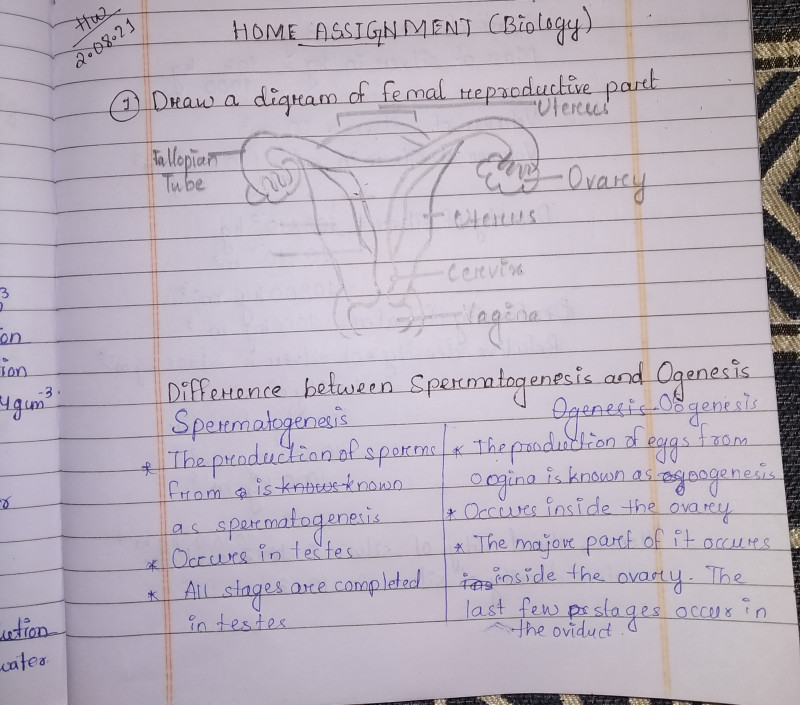 HW
2.08.21
HOME ASSIGNMENT (Biology)
1 Draw a digram of femal reproductive part
Uterus
Fallopian
Tube
Ovary
Uterus
Cervix
Vagina
3
on
ion
4gm⁻³.
Difference between Spermatogenesis and Ogenesis
Spermatogenesis
Ogenesis Oogenesis
* The production of sperms
from is knows known
as spermatogenesis
* Occurs in testes
* All stages are completed
in testes
* The production of eggs from
oogina is known as oogenesis
* Occures inside the ovary
* The major part of it occures
inside the ovary. The
last few stages occur in
the oviduct.
uction
water